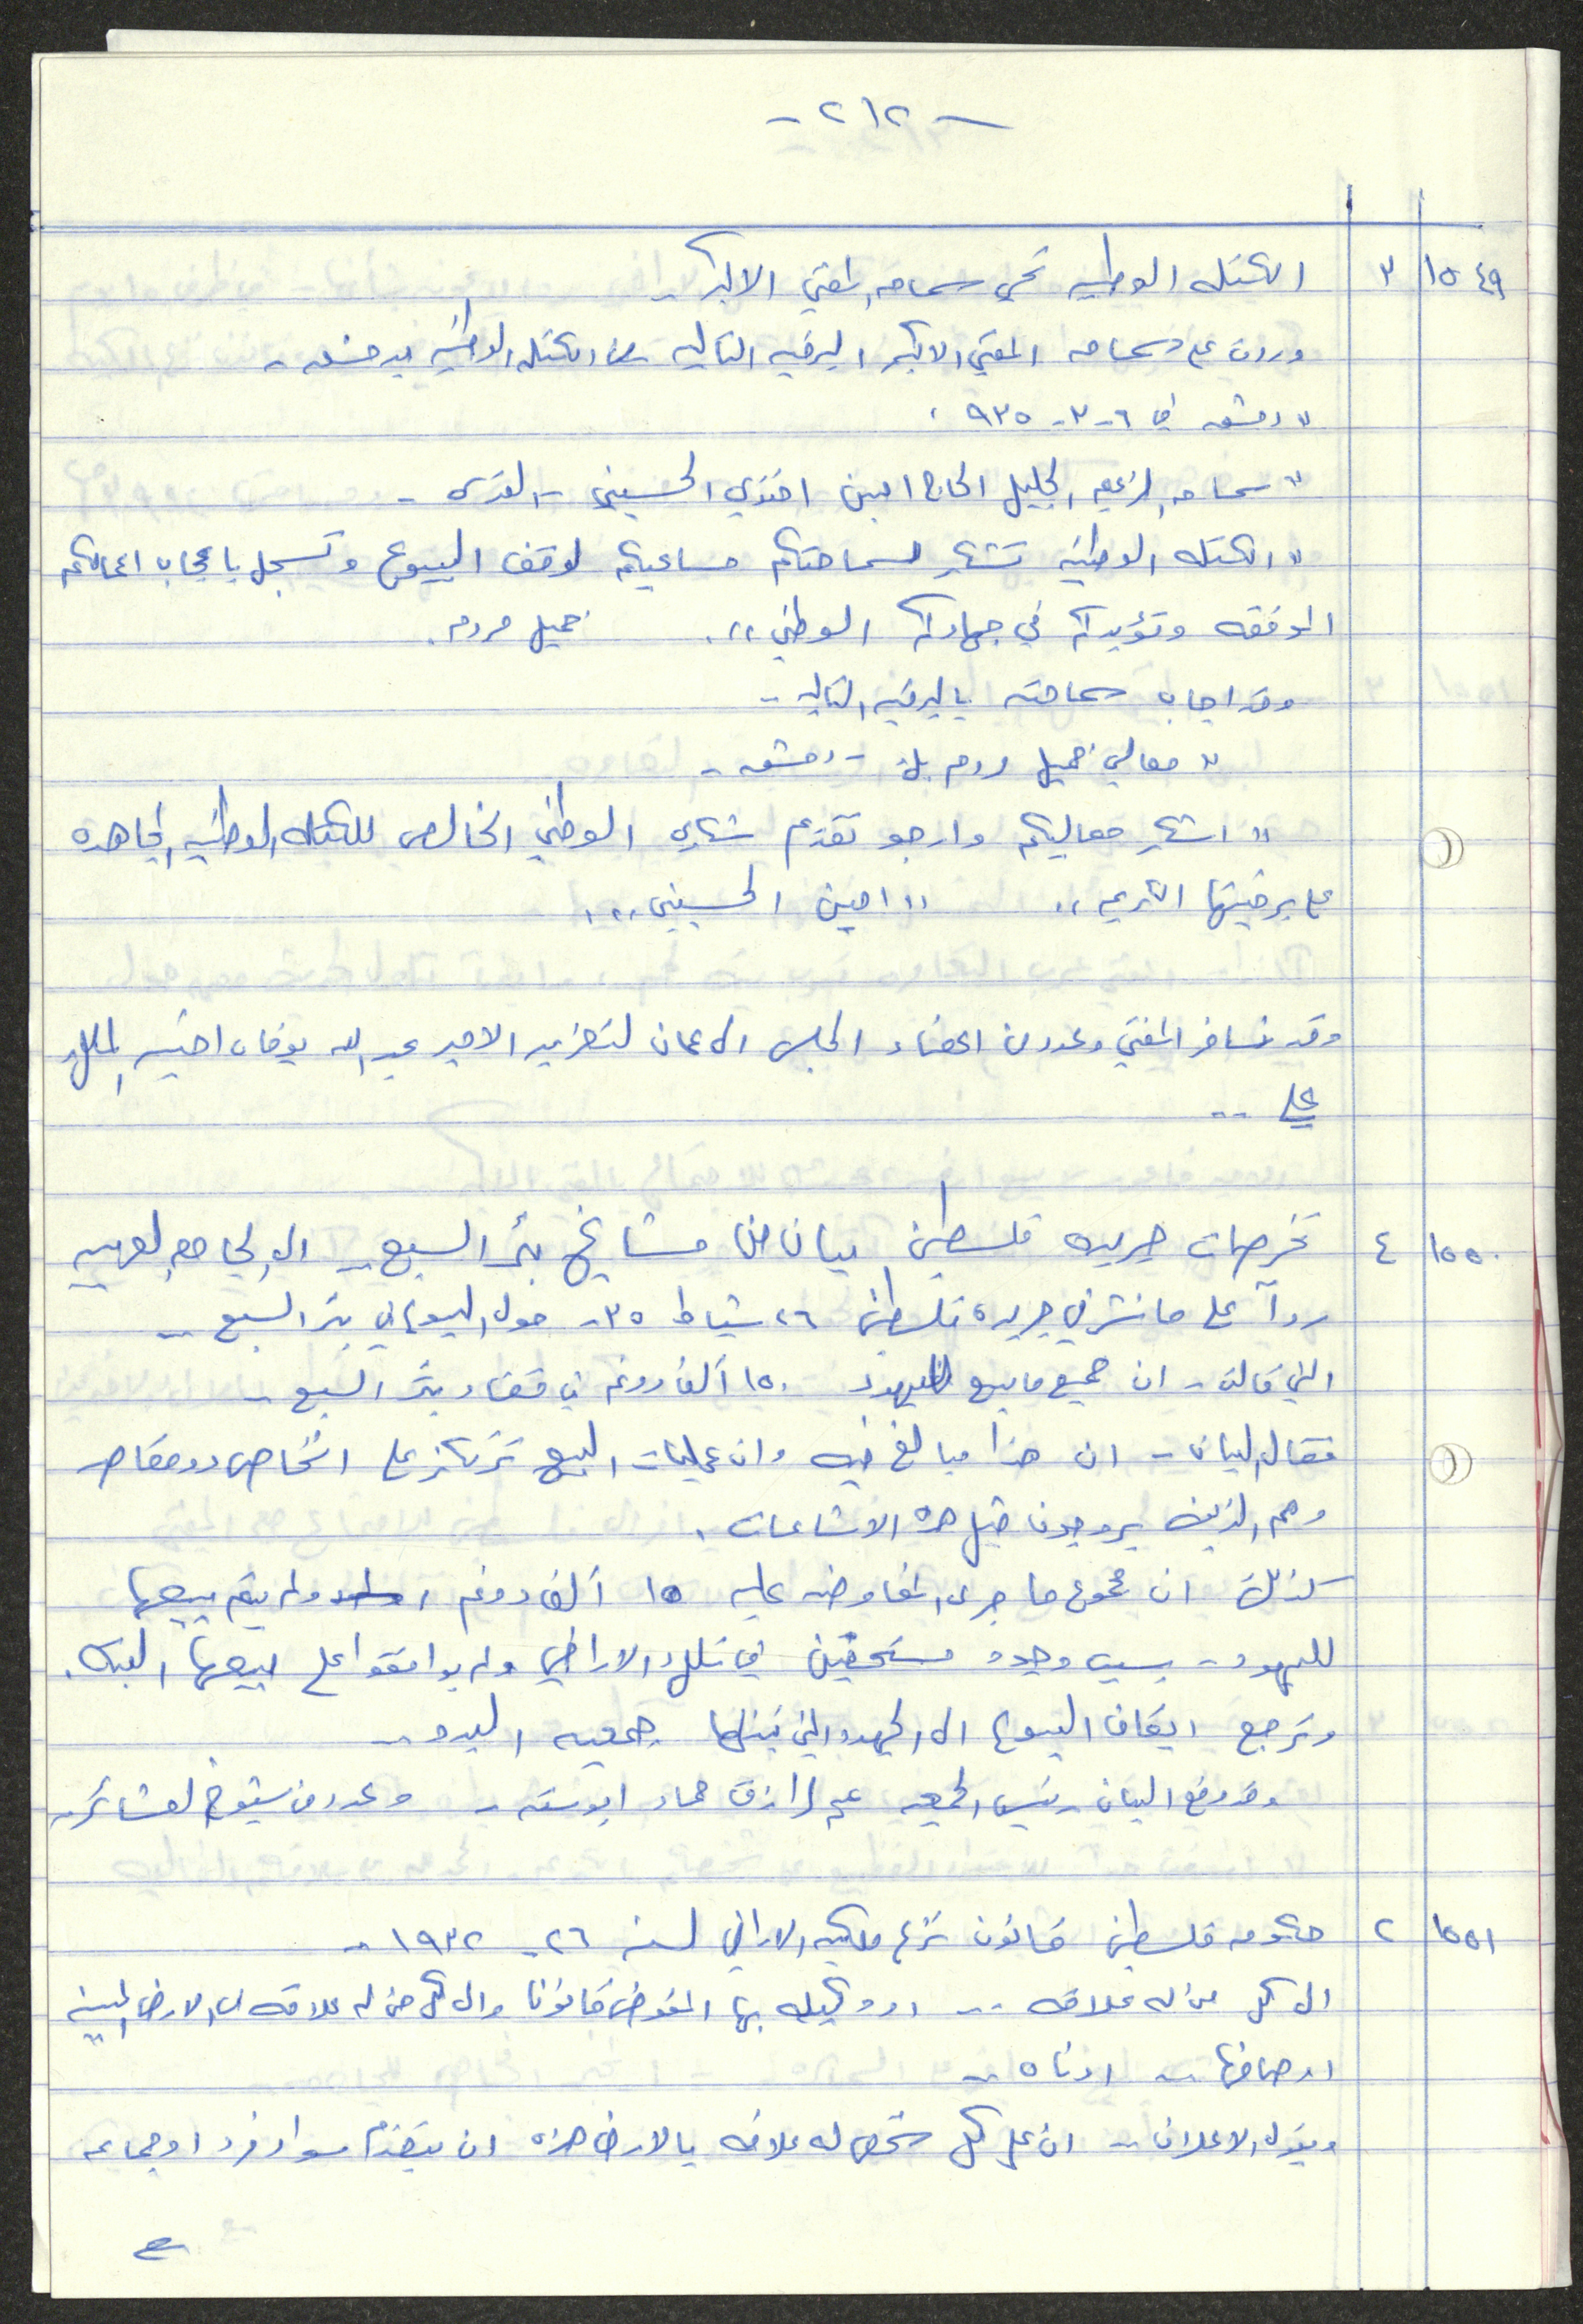 - ٢١٢ -
١٥٤٩ ٣ الكتله الوطنيه تحي سماحه المفتي الاكبر -
وردت على سماحه المفتي الاكبر البرقيه التاليه من الكتله الوطنيه بدمشق -
" دمشق في ٦-٣-٩٣٥ .
" سماحه الزعيم الجليل الحاج امين افندي الحسيني - القدس -
" الكتله الوطنيه تشكر لسماحتكم مساعيكم لوقف البيوع وتسجل باعجاب اعمالكم
الموفقه وتؤيدكم في جهادكم الوطني ". جميل مردم .
وقد اجاب سماحته بالبرقيه التاليه -
" معالي جميل مردم بك - دمشق -
" اشكر معاليكم وارجو تقديم شكري الوطني الخالص للكتله الوطنيه المجاهده
على برقيتها الكريمه ". " امين الحسيني ".
وقد سافر المفتي وعدد من اعضاء المجلس الى عمان لتعزيه الامير عبد الله بوفاه اخيه الملك
علي --
١٥٥٠ ٤ تخرصات جريده فلسطين بيان من مشايخ بئر السبع - الى الجامعه العربيه
رداً على ما نشر في جريده فلسطين ٢٦ شباط ٣٥ - حول البيوع في بئر السبع -
التي قالت - ان جميع ما بيع لليهود ١٥٠ ألف دونم في قضاء بئر السبع -
فقال البيان - ان هذا مبالغ فيه وان عمليات البيع ترتكز على اشخاص ذوو مقاصد
وهم الذين يروجون مثل هذه الاشاعات .
كذلك ان مجموع ما جرى المفاوضه عليه ١٥ ألف دونم ولم يتم بيعها
لليهود - بسبب وجود مستحقين في تلك الاراضي ولم يوافقوا على بيعها البته .
وترجع ايقاف البيوع الى الجهود التي تبذلها جمعيه البدو -
وقد وقع البيان رئيس الجمعيه عبد الرازق حماد ابو سته - وعدد من شيوخ العشائر -
١٥٥١ ٢ حكومه فلسطين قانون نزع ملكيه الاراضي لسنه ٢٦ - ١٩٣٢ -
الى كل من له علاقه -- او وكيله بها المفوض قانونا والى كل من له علاقه في الارض المبينه
اوصافها - ادناه -
ويقول الاعلان - ان على كل شخص له علاقه بالارض هذه ان يتقدم سواء فرد او جماعه